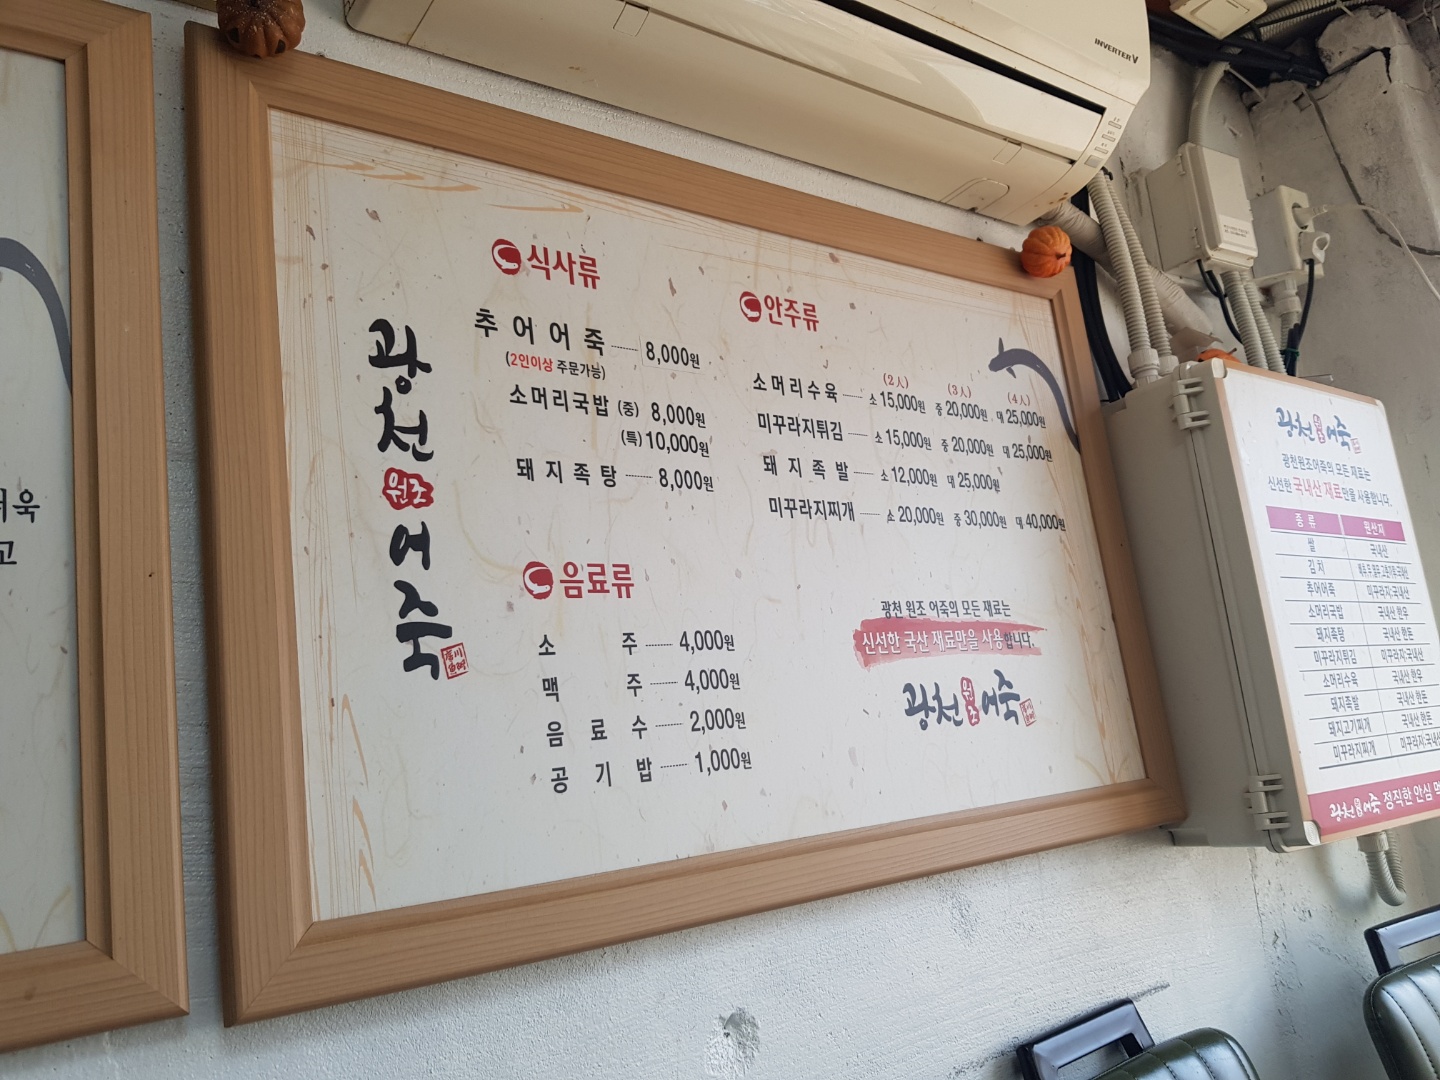 INVERTER V
광천 원조 어죽
식사류
추어어죽 8,000원
(2인이상 주문가능)
소머리국밥 (중) 8,000원
(특) 10,000원
돼지족탕 8,000원
음료류
소주 4,000원
맥주 4,000원
음료수 2,000원
공기밥 1,000원
안주류
(2人) (3人) (4人)
소머리수육 소 15,000원 중 20,000원 대 25,000원
미꾸라지튀김 소 15,000원 중 20,000원 대 25,000원
돼지족발 소 12,000원 대 25,000원
미꾸라지찌개 소 20,000원 중 30,000원 대 40,000원
광천 원조 어죽의 모든 재료는
신선한 국산 재료만을 사용합니다.
광천 원조 어죽
광천 원조 어죽
광천원조어죽의 모든 재료는
신선한 국내산 재료만을 사용합니다.
종류 원산지
쌀 국내산
김치
추어어죽 미꾸라지:국내산
소머리국밥 국내산 한우
돼지족탕 국내산 한돈
미꾸라지튀김 미꾸라지:국내산
소머리수육 국내산 한우
돼지족발 국내산 한돈
돼지고기찌개 국내산 한돈
미꾸라지찌개 미꾸라지:국내산
광천원조어죽 정직한 안심 먹
욱
고